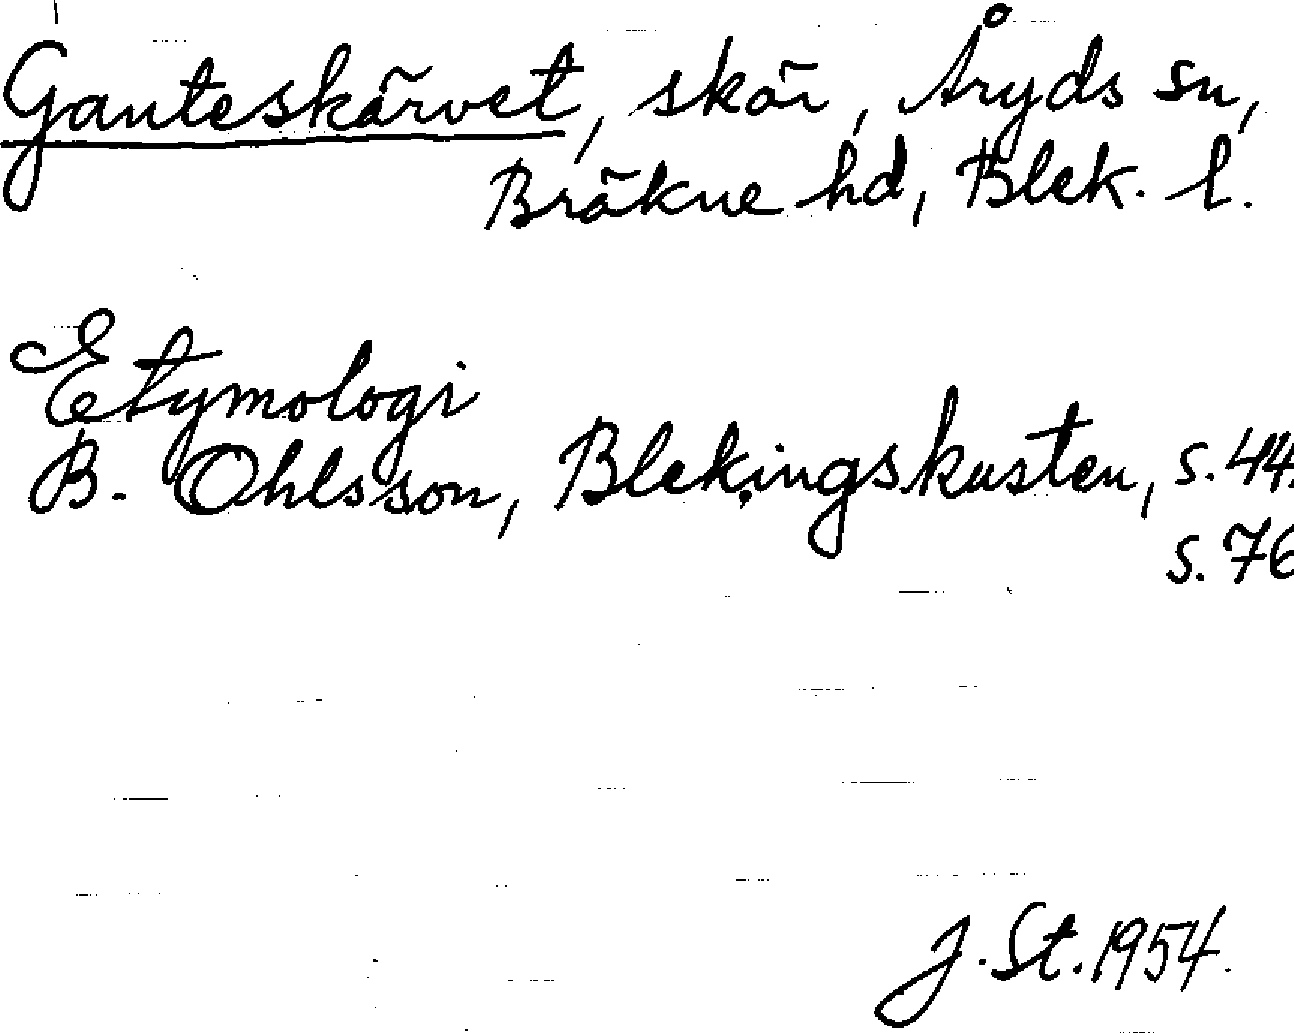 Ganteskärvet, skär, Åryds sn,
Bräkne hd, Blek. l.
Etymologi
B. Ohlsson, Blekingskusten, s. 44.
s. 76
J. St. 1954.